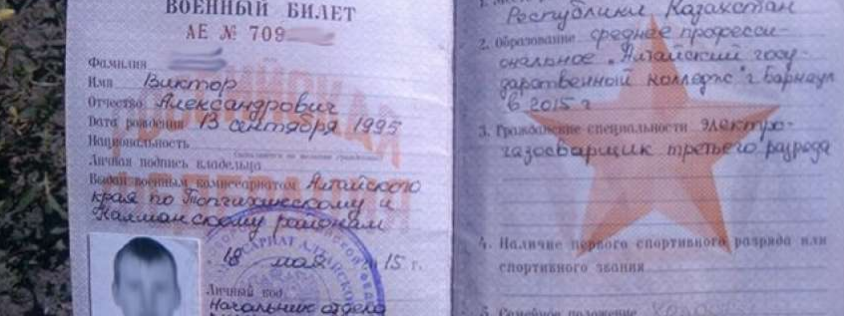 ВОЕННЫЙ БИЛЕТ
АЕ № 709
Фамилия
Имя Виктор
Отчество Александрович
Дата рождения 13 сентября 1995
Национальность
Личная подпись владельца
Выдан военным комиссариатом Алтайского
края по Топчихинскому и
Калманскому районам
18 мая 15 г.
Личный код
Начальник отдела
Республики Казахстан
2. Образование среднее професси-
ональное „Алтайский госу-
дарственный колледж" г. Барнаул
в 2015 г
3. Гражданские специальности электро-
газосварщик третьего разряда
4. Наличие первого спортивного разряда или
спортивного звания
5. Семейное положение